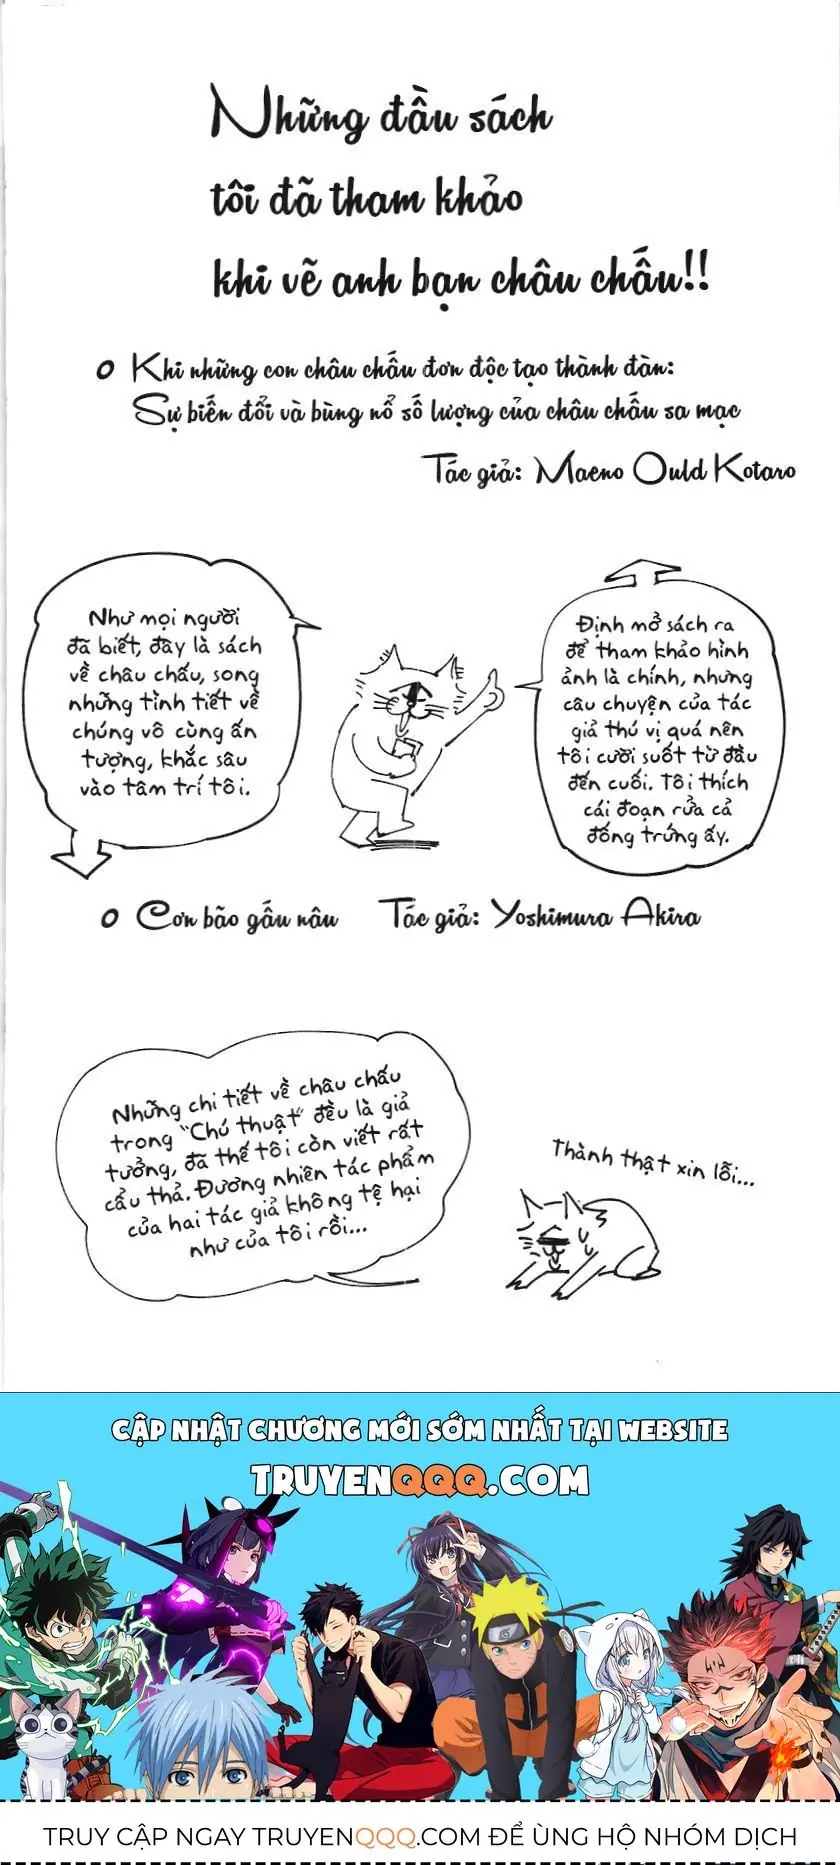 Những đầu sách
tôi đã tham khảo
khi vẽ anh bạn châu chấu!!
Khi những con châu chấu đơn độc tạo thành đàn:
Sự biến đổi và bùng nổ số lượng của châu chấu sa mạc
Tác giả: Maeno Ould Kotaro
Như mọi người
đã biết, đây là sách
về châu chấu, song
những tình tiết về
chúng vô cùng ấn
tượng, khắc sâu
vào tâm trí tôi.
Định mở sách ra
để tham khảo hình
ảnh là chính, nhưng
câu chuyện của tác
giả thú vị quá nên
tôi cười suốt từ đầu
đến cuối. Tôi thích
cái đoạn rửa cả
đống trứng ấy.
Cơn bão gấu nâu Tác giả: Yoshimura Akira
Những chi tiết về châu chấu
trong "Chú thuật" đều là giả
tưởng, đã thế tôi còn viết rất
cẩu thả. Đương nhiên tác phẩm
của hai tác giả không tệ hại
như của tôi rồi...
Thành thật xin lỗi...
CẬP NHẬT CHƯƠNG MỚI SỚM NHẤT TẠI WEBSITE
TRUYENQQQ.COM
TRUY CẬP NGAY TRUYENQQQ.COM ĐỂ ỦNG HỘ NHÓM DỊCH